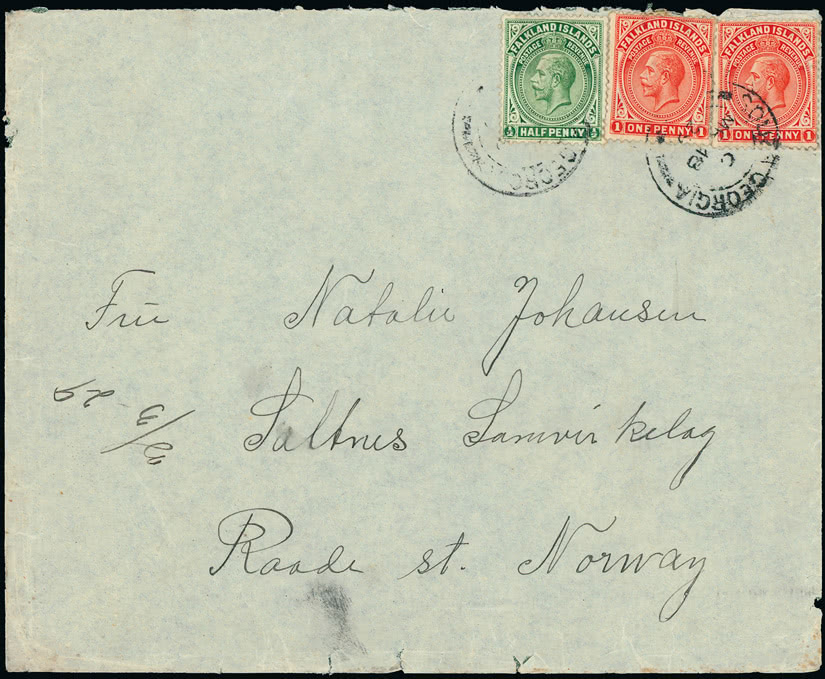 FALKLAND ISLANDS
POSTAGE REVENUE
½ HALF PENNY ½
FALKLAND ISLANDS
POSTAGE REVENUE
1 ONE PENNY 1
FALKLAND ISLANDS
POSTAGE REVENUE
1 ONE PENNY 1
GEORG
SOUTH GEORGIA
C
Fru Natalie Johansen
Saltnes Samvirkelag
Raade st. Norway